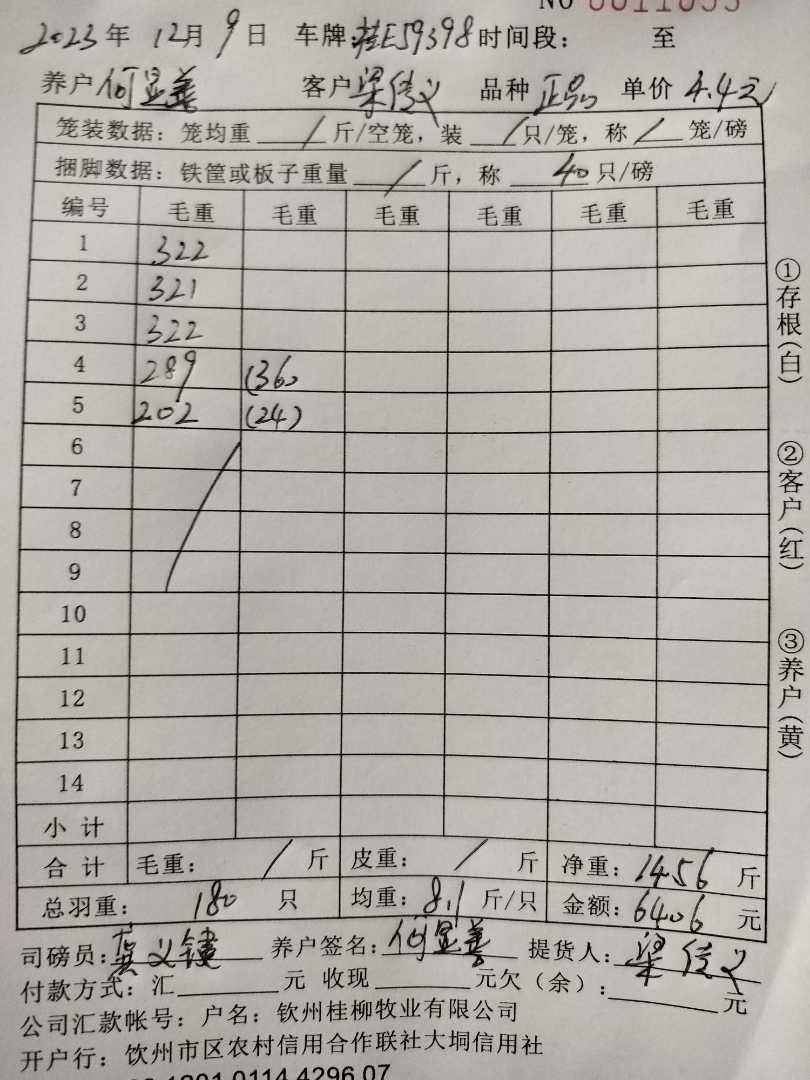 NO 0011055
2023年 12月9日 车牌:桂E59398 时间段: 至
养户 何显善 客户 梁信义 品种 正品 单价 4.4元
笼装数据:笼均重 / 斤/空笼,装 / 只/笼,称 / 笼/磅
捆脚数据:铁筐或板子重量 / 斤,称 40 只/磅
编号 毛重 毛重 毛重 毛重 毛重 毛重
1 322
2 321
3 322
4 289 (36)
5 202 (24)
6
7
8
9
10
11
12
13
14
小计
合计 毛重: / 斤 皮重: / 斤 净重: 1456 斤
总羽重: 180 只 均重: 8.1 斤/只 金额: 6406 元
司磅员: 义 养户签名: 何显善 提货人: 梁信义
付款方式:汇 元 收现 元欠(余): 元
公司汇款帐号:户名:钦州桂柳牧业有限公司
开户行:钦州市区农村信用合作联社大垌信用社
0114 4296 07
①存根(白)
②客户(红)
③养户(黄)